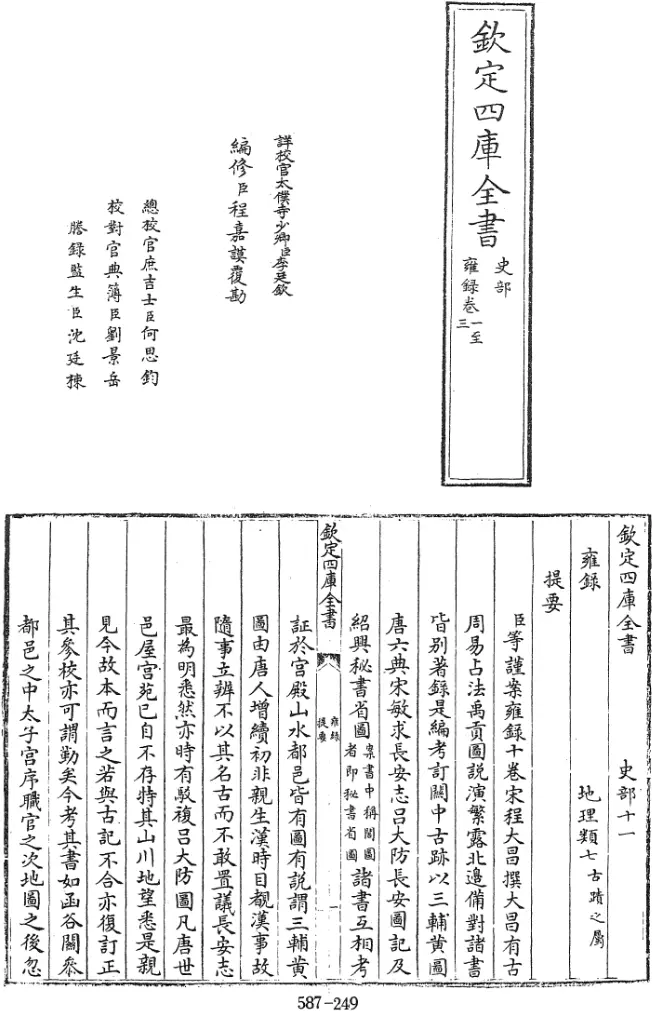 欽定四庫全書
史部
雍錄卷一至三
詳校官太僕寺少卿臣李廷欽
編修臣程嘉謨覆勘
總校官庶吉士臣何思鈞
校對官典簿臣劉景岳
謄錄監生臣沈廷棟
欽定四庫全書 史部十一
雍錄 地理類七古蹟之屬
提要
臣等謹案雍錄十卷宋程大昌撰大昌有古
周易占法禹貢圖說演繁露北邊備對諸書
皆别著錄是編考訂關中古跡以三輔黄圖
唐六典宋敏求長安志吕大防長安圖記及
紹興秘書省圖案書中稱閣圖者即秘書省圖諸書互相考
欽定四庫全書 雍錄提要 一
証於宫殿山水都邑皆有圖有說謂三輔黄
圖由唐人增續初非親生漢時目覩漢事故
隨事立辨不以其名古而不敢置議長安志
最為明悉然亦時有駁複吕大防圖凡唐世
邑屋宫苑已自不存特其山川地望悉是親
見今故本而言之若與古記不合亦復訂正
其參校亦可謂勤矣今考其書如函谷關叅
都邑之中太子宫序職官之次地圖之後忽
587-249